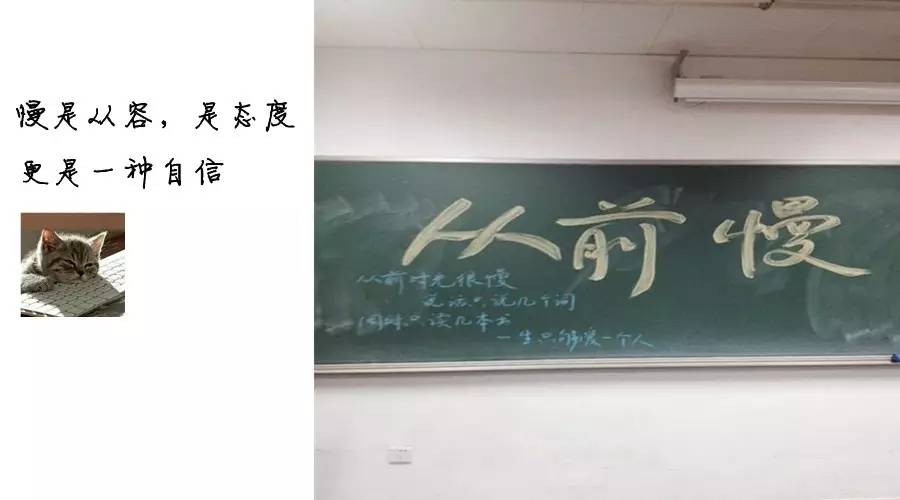 慢是从容，是态度
更是一种自信
从前慢
从前时光很慢
说话只说几个词
闲时只读几本书
一生只够爱一个人